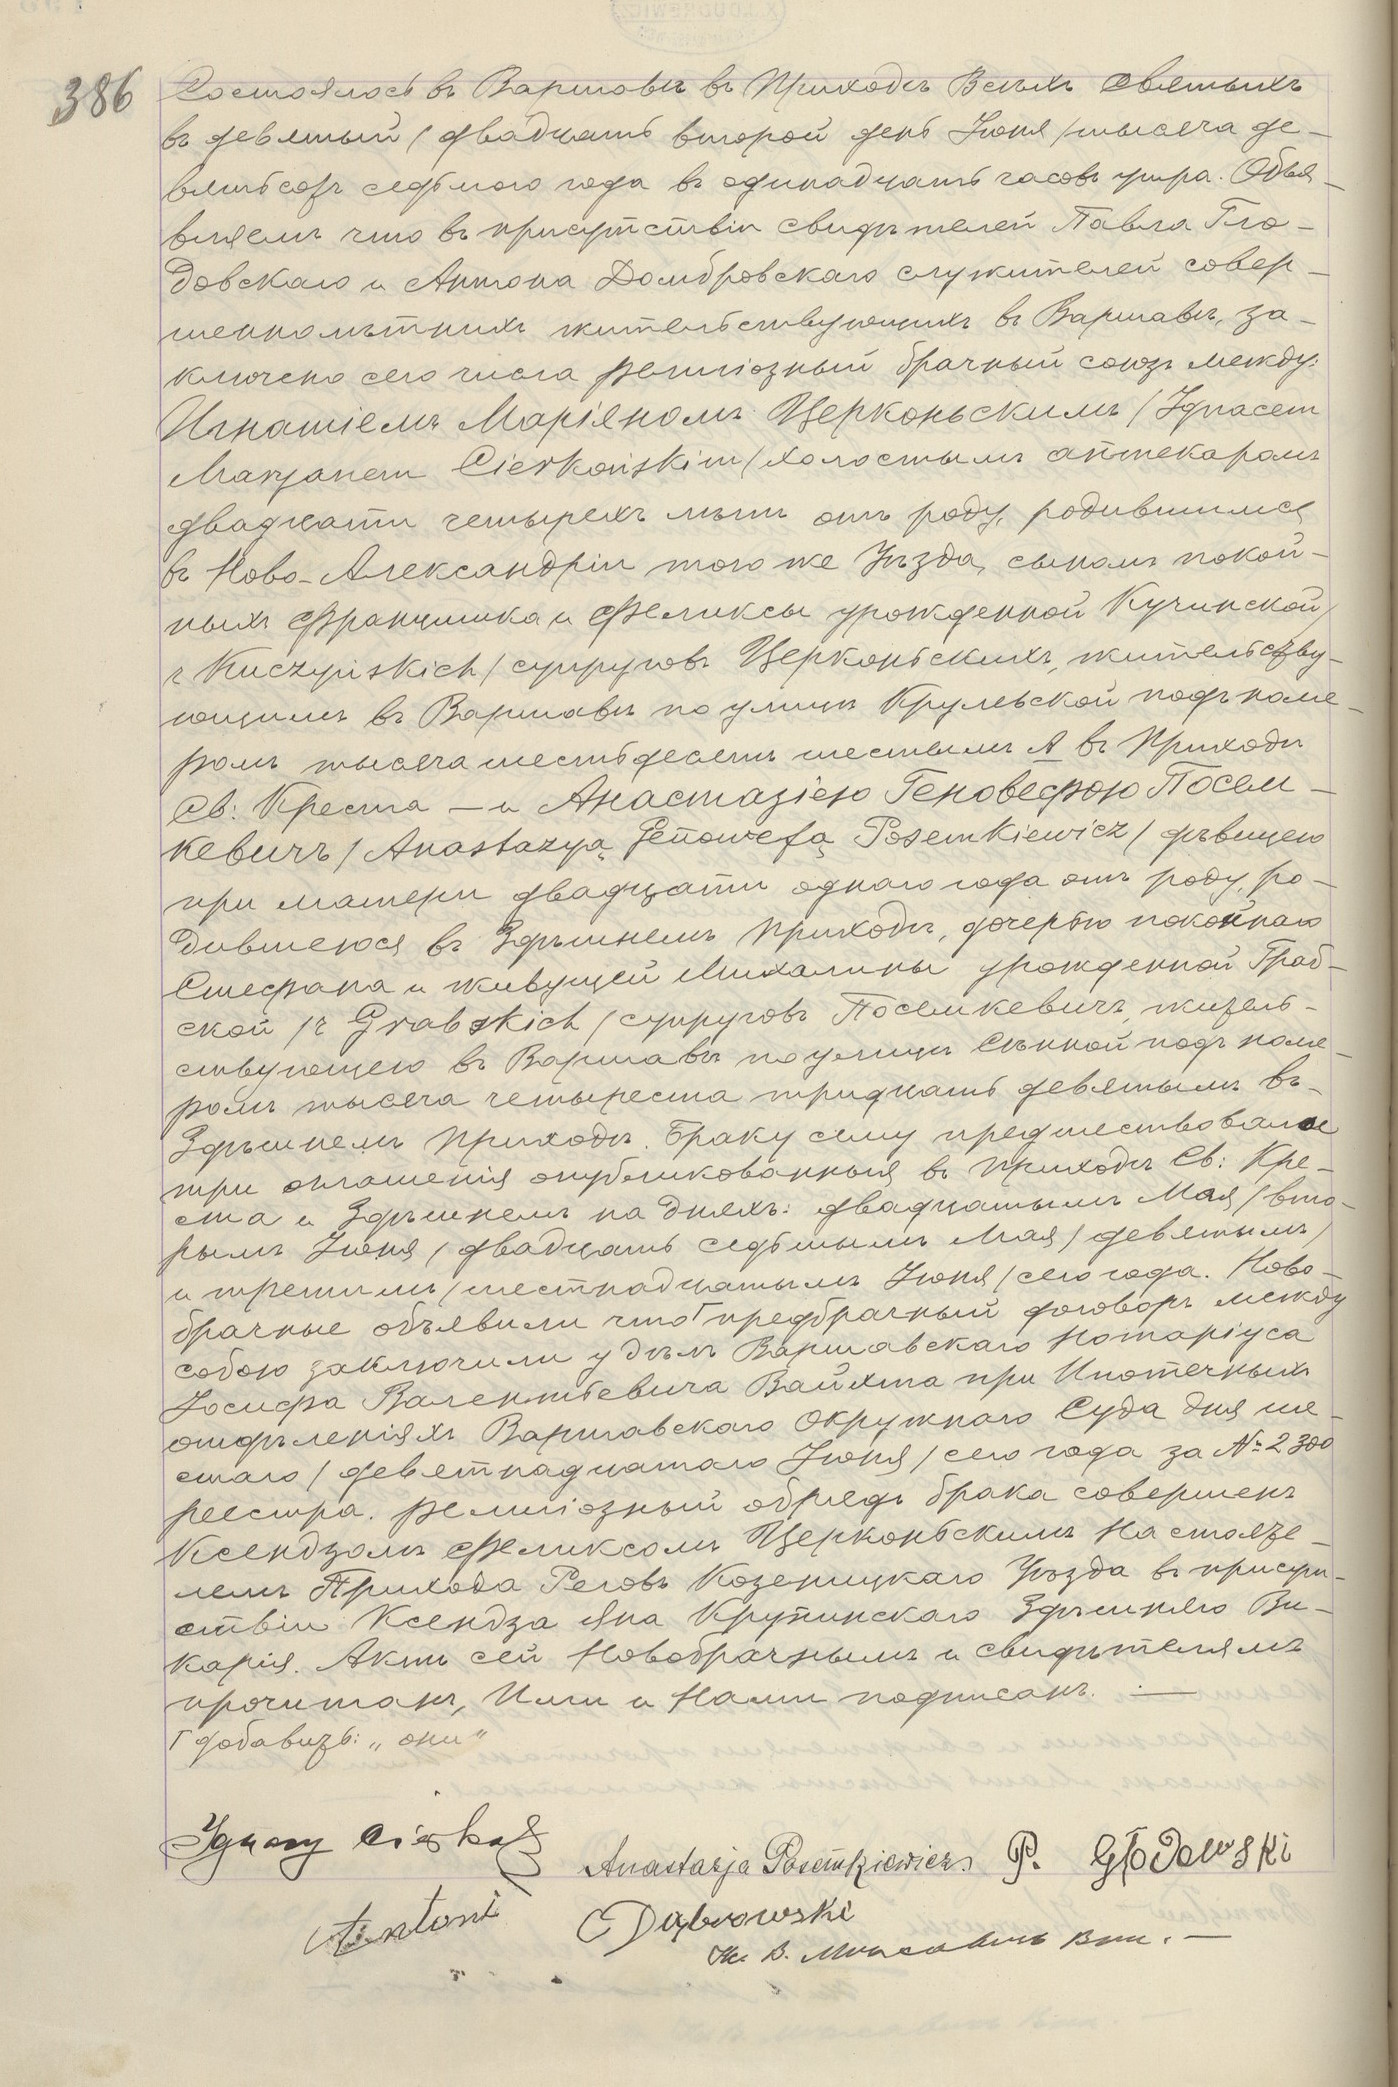 386
Состоялось въ Варшавѣ въ Приходѣ Всѣхъ Святыхъ
въ девятый / двадцать второй день Іюня / тысяча де-
вятьсотъ седьмого года въ одинадцать часовъ утра. Объя-
вляемъ что въ присутствіи свидѣтелей Павла Гло-
довскаго и Антона Домбровскаго служителей совер-
шеннолѣтнихъ жительствующихъ въ Варшавѣ, за-
ключено сего числа религіозный брачный союзъ между:
Игнатіемъ Маріяномъ Церконьскимъ / Ignacem
Maryanem Cierkońskim / холостымъ аптекаромъ
двадцати четырехъ лѣтъ отъ роду, родившимся
въ Ново-Александріи того же Уѣзда, сыномъ покой-
ныхъ Францишка и Феликсы урожденной Кучинской /
z Kuczyńskich / супруговъ Церконьскихъ, жительству-
ющимъ въ Варшавѣ по улицѣ Крулевской подъ номе-
ромъ тысяча шестьдесятъ шестымъ А въ Приходѣ
Св: Креста — и Анастазіею Геновефою Посем-
кевичъ / Anastazyą Genowefą Posemkiewicz / дѣвицею
при матери двадцати одного года отъ роду, ро-
дившеюся въ Здѣшнемъ Приходѣ, дочерью покойнаго
Стефана и живущей Михалины урожденной Граб-
ской / z Grabskich / супруговъ Посемкевичъ, житель-
ствующею въ Варшавѣ по улицѣ Сѣнной подъ номе-
ромъ тысяча четыреста тридцать девятымъ въ
Здѣшнемъ Приходѣ. Браку сему предшествовали
три оглашенія опубликованныя въ Приходѣ Св: Кре-
ста и Здѣшнемъ на дняхъ: двадцатымъ Мая / вто-
рымъ Іюня / двадцать седьмымъ Мая / девятымъ /
и третьимъ / шестнадцатымъ Іюня / сего года. Ново-
брачные объявили что Г предбрачный договоръ между
собою заключили у дѣлъ Варшавскаго Нотаріуса
Іосифа Валентьевича Вайхта при Ипотечныхъ
отдѣленіяхъ Варшавскаго Окружнаго Суда дня ше-
стаго / девятнадцатаго Іюня / сего года за № 2300
реестра. Религіозный обрядъ брака совершенъ
Ксендзомъ Феликсомъ Церконьскимъ Настояте-
лемъ Прихода Реговъ Козеницкаго Уѣзда въ присут-
ствіи Ксендза Яна Крупинскаго Здѣшняго Ви-
карія. Актъ сей Новобрачнымъ и свидѣтелямъ
прочитанъ, Ими и Нами подписанъ. —
Г добавить: „они“
Ignacy
Anastazja Posemkiewicz. P. Głodowski
Antoni Dąbrowski
Кс. В.